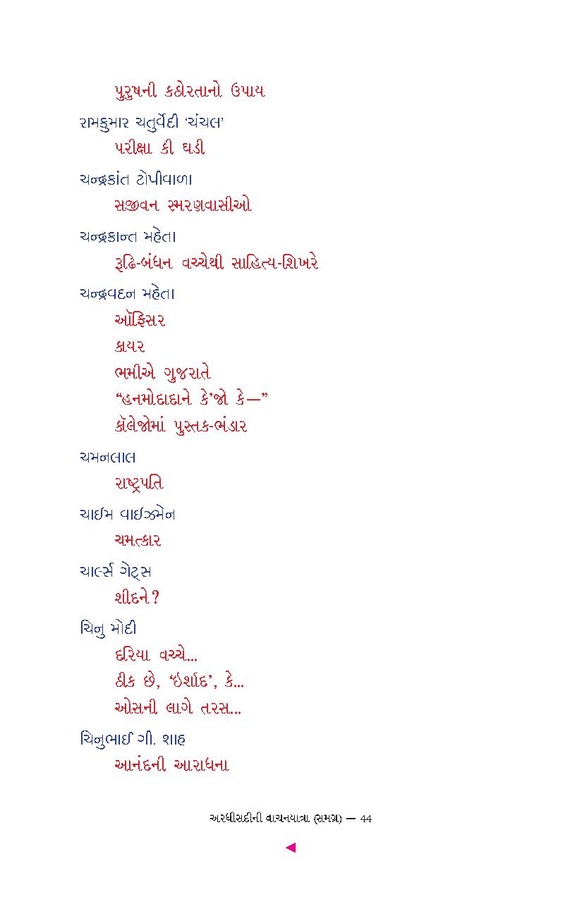 પુરુષની કઠોરતાનો ઉપાય
રામકુમાર ચતુર્વેદી ‘ચંચલ’
પરીક્ષા કી ઘડી
ચન્દ્રકાંત ટોપીવાળા
સજીવન સ્મરણવાસીઓ
ચન્દ્રકાન્ત મહેતા
રૂઢિ-બંધન વચ્ચેથી સાહિત્ય-શિખરે
ચન્દ્રવદન મહેતા
ઑફિસર
કાયર
ભમીએ ગુજરાતે
“હનમોદાદાને કે’જો કે—”
કૉલેજોમાં પુસ્તક-ભંડાર
ચમનલાલ
રાષ્ટ્રપતિ
ચાઈમ વાઈઝમેન
ચમત્કાર
ચાર્લ્સ ગેટ્સ
શીદને?
ચિનુ મોદી
દરિયા વચ્ચે...
ઠીક છે, ‘ઇર્શાદ’, કે...
ઓસની લાગે તરસ...
ચિનુભાઈ ગી. શાહ
આનંદની આરાધના
અરધીસદીની વાચનયાત્રા (સમગ્ર) — 44